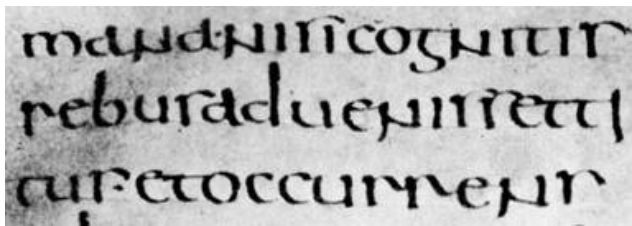 mana·nisicognitis
rebusaduenissetti
tus·etoccurrens